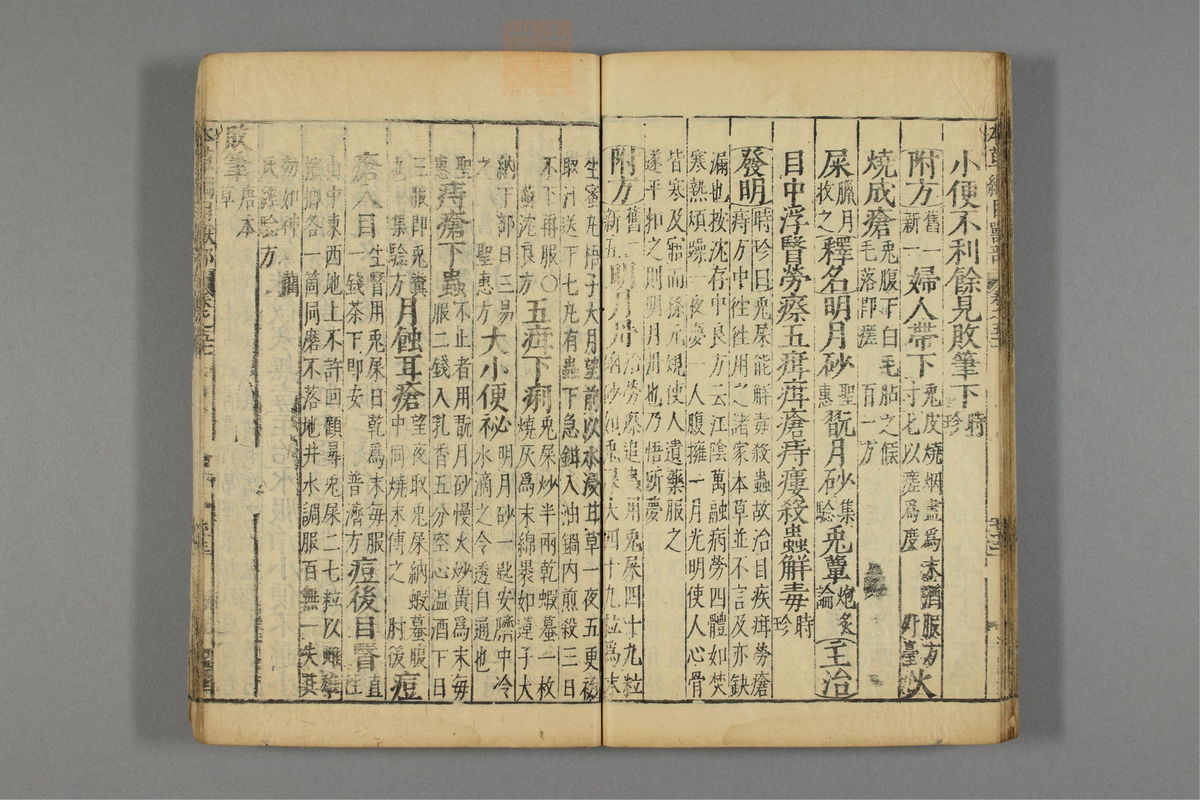 小便不利餘見敗筆下時珍
附方舊一新一婦人帶下兔皮燒烟盡為末酒服方寸匕以瘥為度 外臺火
燒成瘡兔腹下白毛貼之候毛落即瘥 百一方
屎臘月收之釋名明月砂聖惠翫月砂集驗兔蕈炮炙論主治
目中浮瞖勞瘵五疳疳瘡痔瘻殺蟲解毒時珍
發明時珍曰兔屎能解毒殺蟲故治目疾疳勞瘡痔方中往往用之諸家本草並不言及亦缺
漏也按沈存中良方云江陰萬融病勞四體如焚寒熱煩躁一夜夢一人腹擁一月光明使人心骨
皆寒及寤而孫元規使人遺藥服之遂平扣之則明月丹也乃悟所夢
附方舊一新五明月丹治勞瘵追蟲用兔屎四十九粒硇砂如兔屎大四十九粒為末
生蜜丸梧子大月望前以水浸甘草一夜五更初取汁送下七丸有蟲下急鉗入油鍋內煎殺三日
不下再服○蘇沈良方五疳下痢兔屎炒半兩乾蝦蟇一枚燒灰為末綿裹如蓮子大
納下部日三易之 聖惠方大小便祕明月砂一匙安臍中冷水滴之令透自通也
聖惠痔瘡下蟲不止者用翫月砂慢火炒黃為末每服二錢入乳香五分空心溫酒下日
三服即兔糞也 集驗方月蝕耳瘡望夜取兔屎納蝦蟇腹中同燒末傅之 肘後痘
瘡入目生瞖用兔屎日乾為末每服一錢茶下即安 普濟方痘後目瞖直往
山中東西地上不許回顧尋兔屎二七粒以雌雄檳榔各一箇同磨不落地井水調服百無一失其
効如神 藺氏經驗方
敗筆唐本草